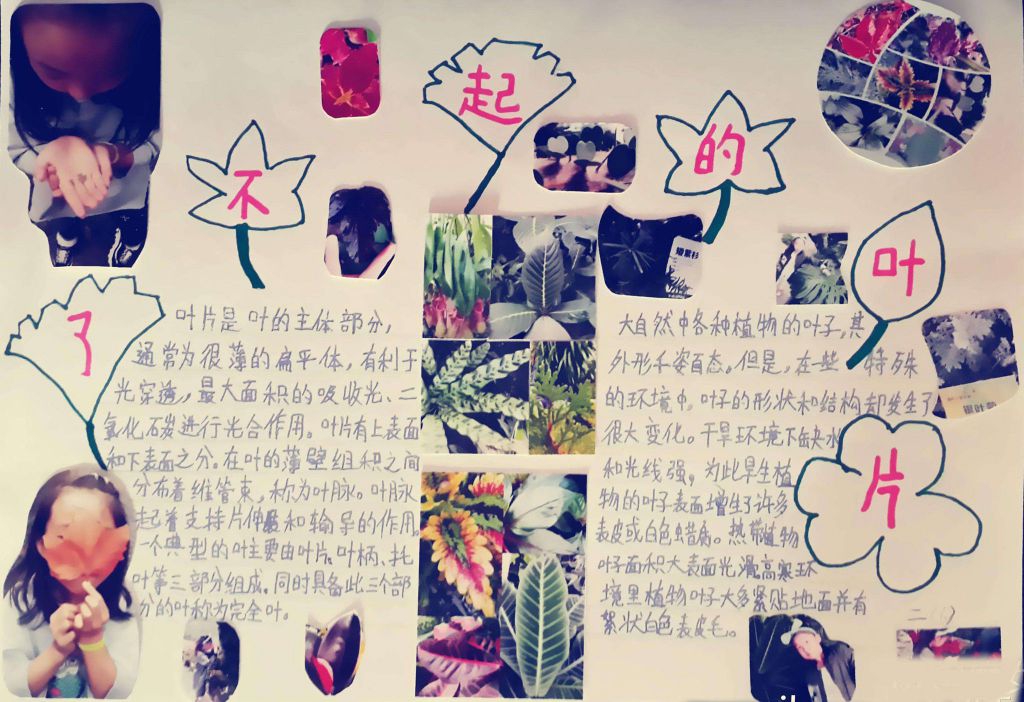 了不起的叶片
叶片是叶的主体部分,
通常为很薄的扁平体,有利于
光穿透,最大面积的吸收光、二
氧化碳进行光合作用。叶片有上表面
和下表面之分。在叶的薄壁组织之间
分布着维管束,称为叶脉。叶脉
起着支持片伸展和输导的作用。
一个典型的叶主要由叶片、叶柄、托
叶等三部分组成。同时具备此三个部
分的叶称为完全叶。
大自然中各种植物的叶子,其
外形千姿百态。但是,在一些特殊
的环境中,叶子的形状和结构却发生了
很大变化。干旱环境下缺水
和光线强,为此旱生植
物的叶子表面增生了许多
表皮或白色蜡质。热带植物
叶子面积大表面光滑。高寒环
境里植物叶子大多紧贴地面并有
絮状白色表皮毛。